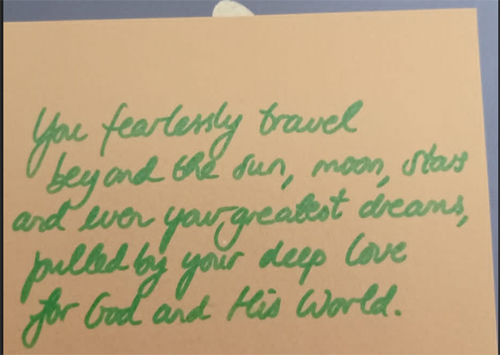 You fearlessly travel
beyond the sun, moon, stars
and even your greatest dreams,
pulled by your deep love
for God and His World.